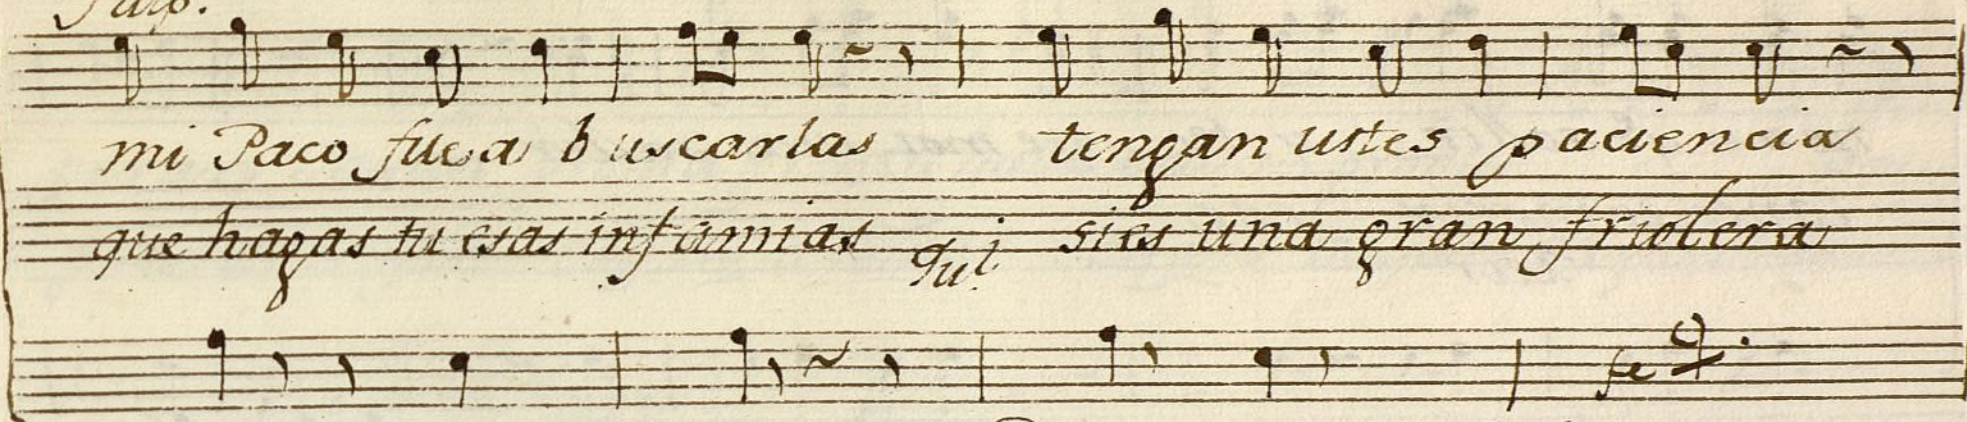 mi Paco fue a buscarlas tengan ustes paciencia
que hagas tu esas infamias qui sies una gran friolera
fe